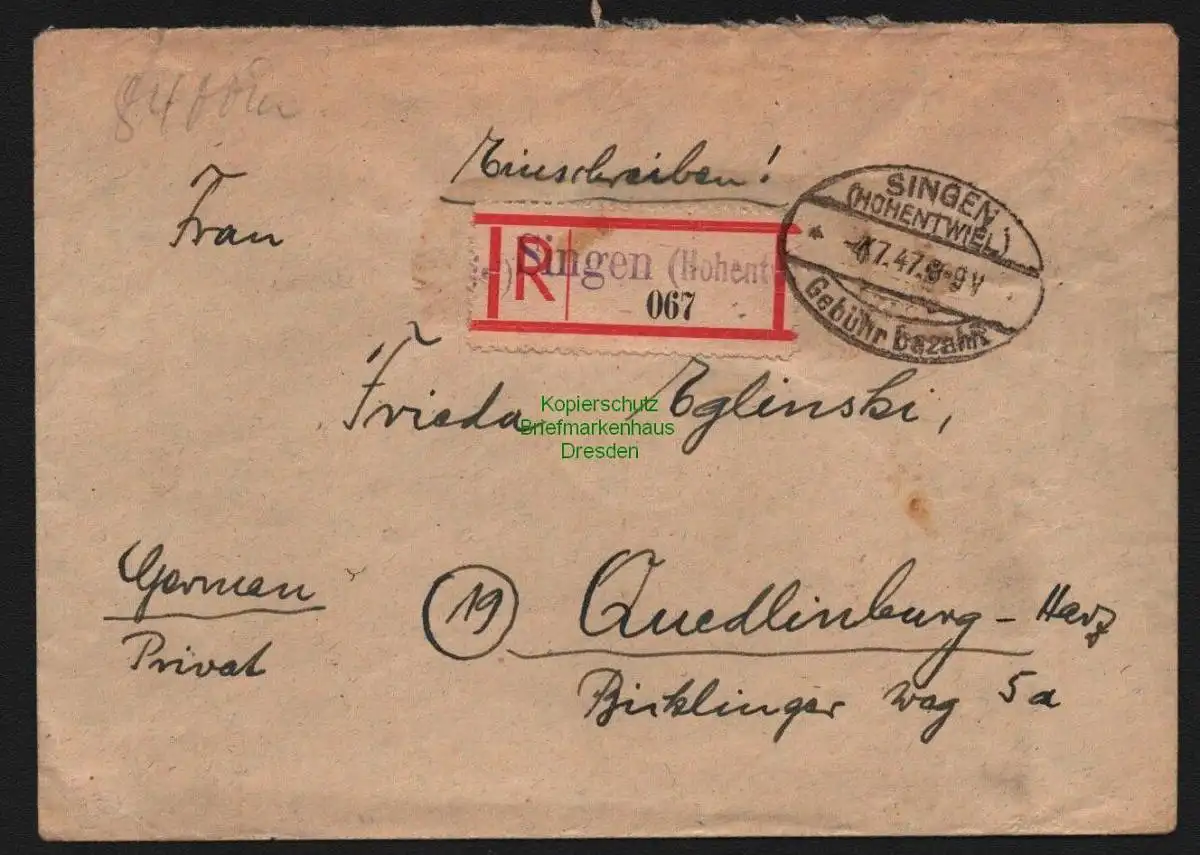 Einschreiben!
Frau
SINGEN
(HOHENTWIEL)
7.47. 8-9 V
Gebühr bezahlt
R Singen (Hohentw
067
Frieda Eglinski,
Kopierschutz
Briefmarkenhaus
Dresden
German
Privat
19 Quedlinburg - Harz
Bicklinger Weg 5a